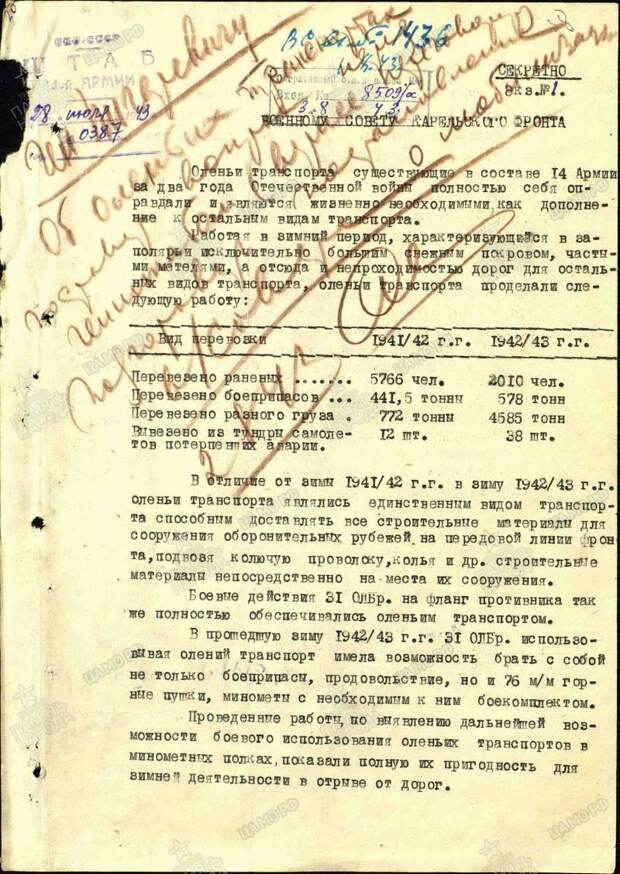 ШТАБ
АРМИИ
28 июля 43
0387
1436
Вход. №
8509/с
3.8 43
СЕКРЕТНО
экз.№1.
ВОЕННОМУ СОВЕТУ КАРЕЛЬСКОГО ФРОНТА
Оленьи транспорта существующие в составе 14 Армии
за два года Отечественной войны полностью себя оп-
равдали и являются жизненно необходимыми, как дополне-
ние к остальным видам транспорта.
Работая в зимний период, характеризующийся в за-
полярьи исключительно большим снежным покровом, часты-
ми метелями, а отсюда и непроходимостью дорог для осталь-
ных видов транспорта, оленьи транспорта проделали сле-
дующую работу:
Вид перевозки 1941/42 г.г. 1942/43 г.г.
Перевезено раненых ....... 5766 чел. 2010 чел.
Перевезено боеприпасов ... 441,5 тонны 578 тонн
Перевезено разного груза . 772 тонны 4585 тонн
Вывезено из тундры самоле- 12 шт. 38 шт.
тов потерпевших аварии.
В отличие от зимы 1941/42 г.г. в зиму 1942/43 г.г.
оленьи транспорта являлись единственным видом транспор-
та способным доставлять все строительные материалы для
сооружения оборонительных рубежей на передовой линии фрон
та, подвозя колючую проволоку, колья и др. строительные
материалы непосредственно на места их сооружения.
Боевые действия 31 ОЛБр. на фланг противника так
же полностью обеспечивались оленьим транспортом.
В прошедшую зиму 1942/43 г.г. 31 ОЛБр. использо-
вывая олений транспорт имела возможность брать с собой
не только боеприпасы, продовольствие, но и 76 м/м гор-
ные пушки, минометы с необходимым к ним боекомплектом.
Проведенные работы, по выявлению дальнейшей воз-
можности боевого использования оленьих транспортов в
минометных полках, показали полную их пригодность для
зимней деятельности в отрыве от дорог.
ЦАМО.РФ